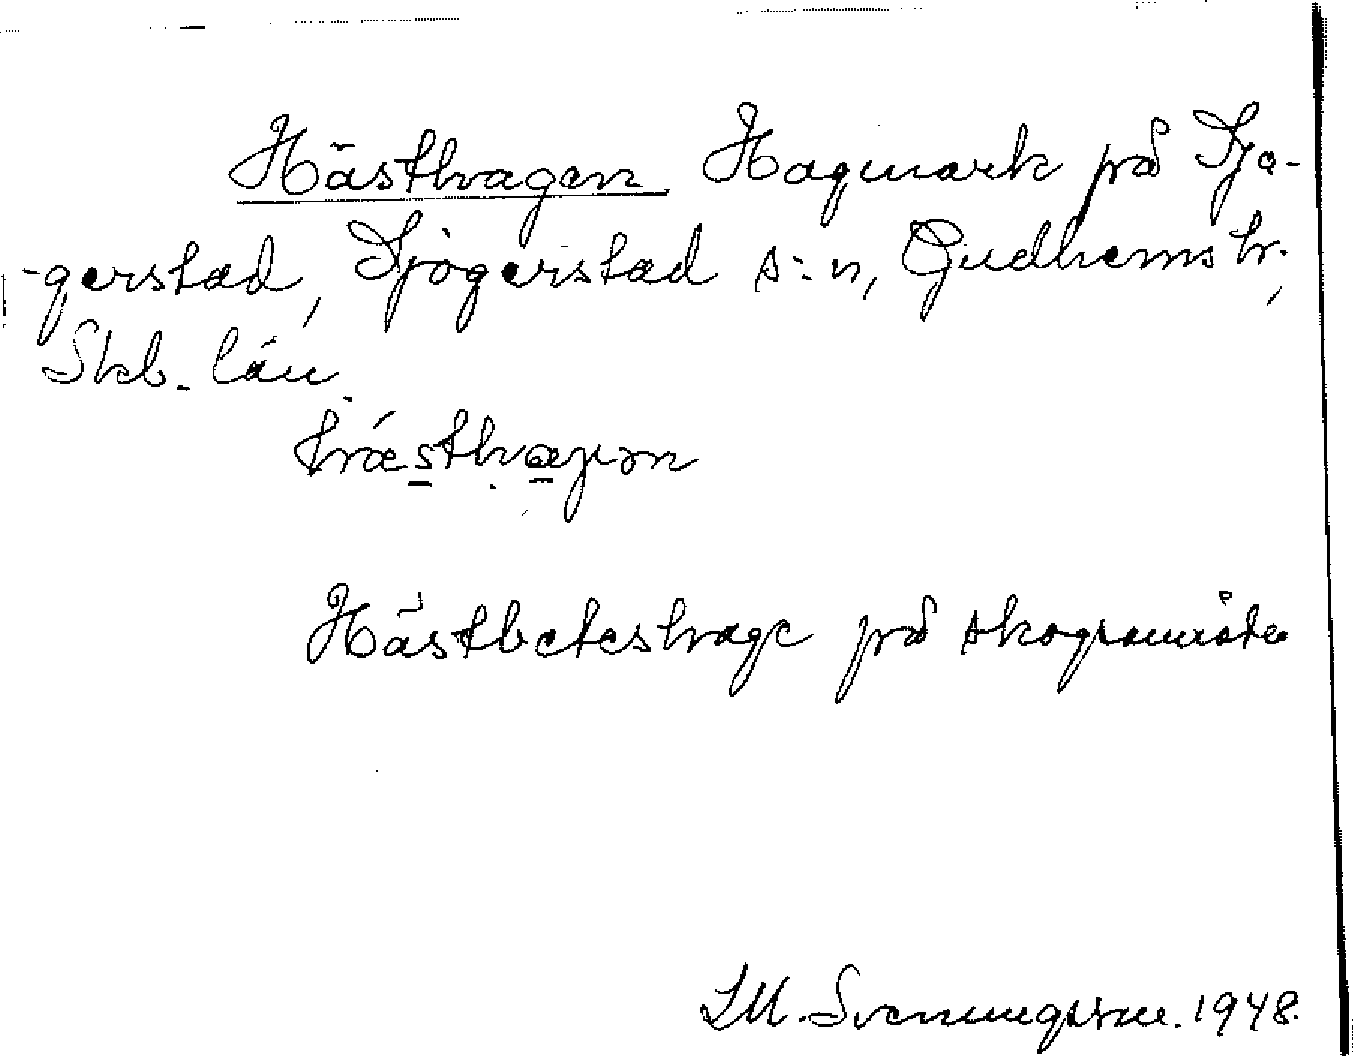 Hästhagen Hagmark på Sjo-
-gerstad, Sjögerstad s:n, Gudhems hr.,
Skb. län.
Hästbeteshage på skogsområde
Svenningsson. 1948.